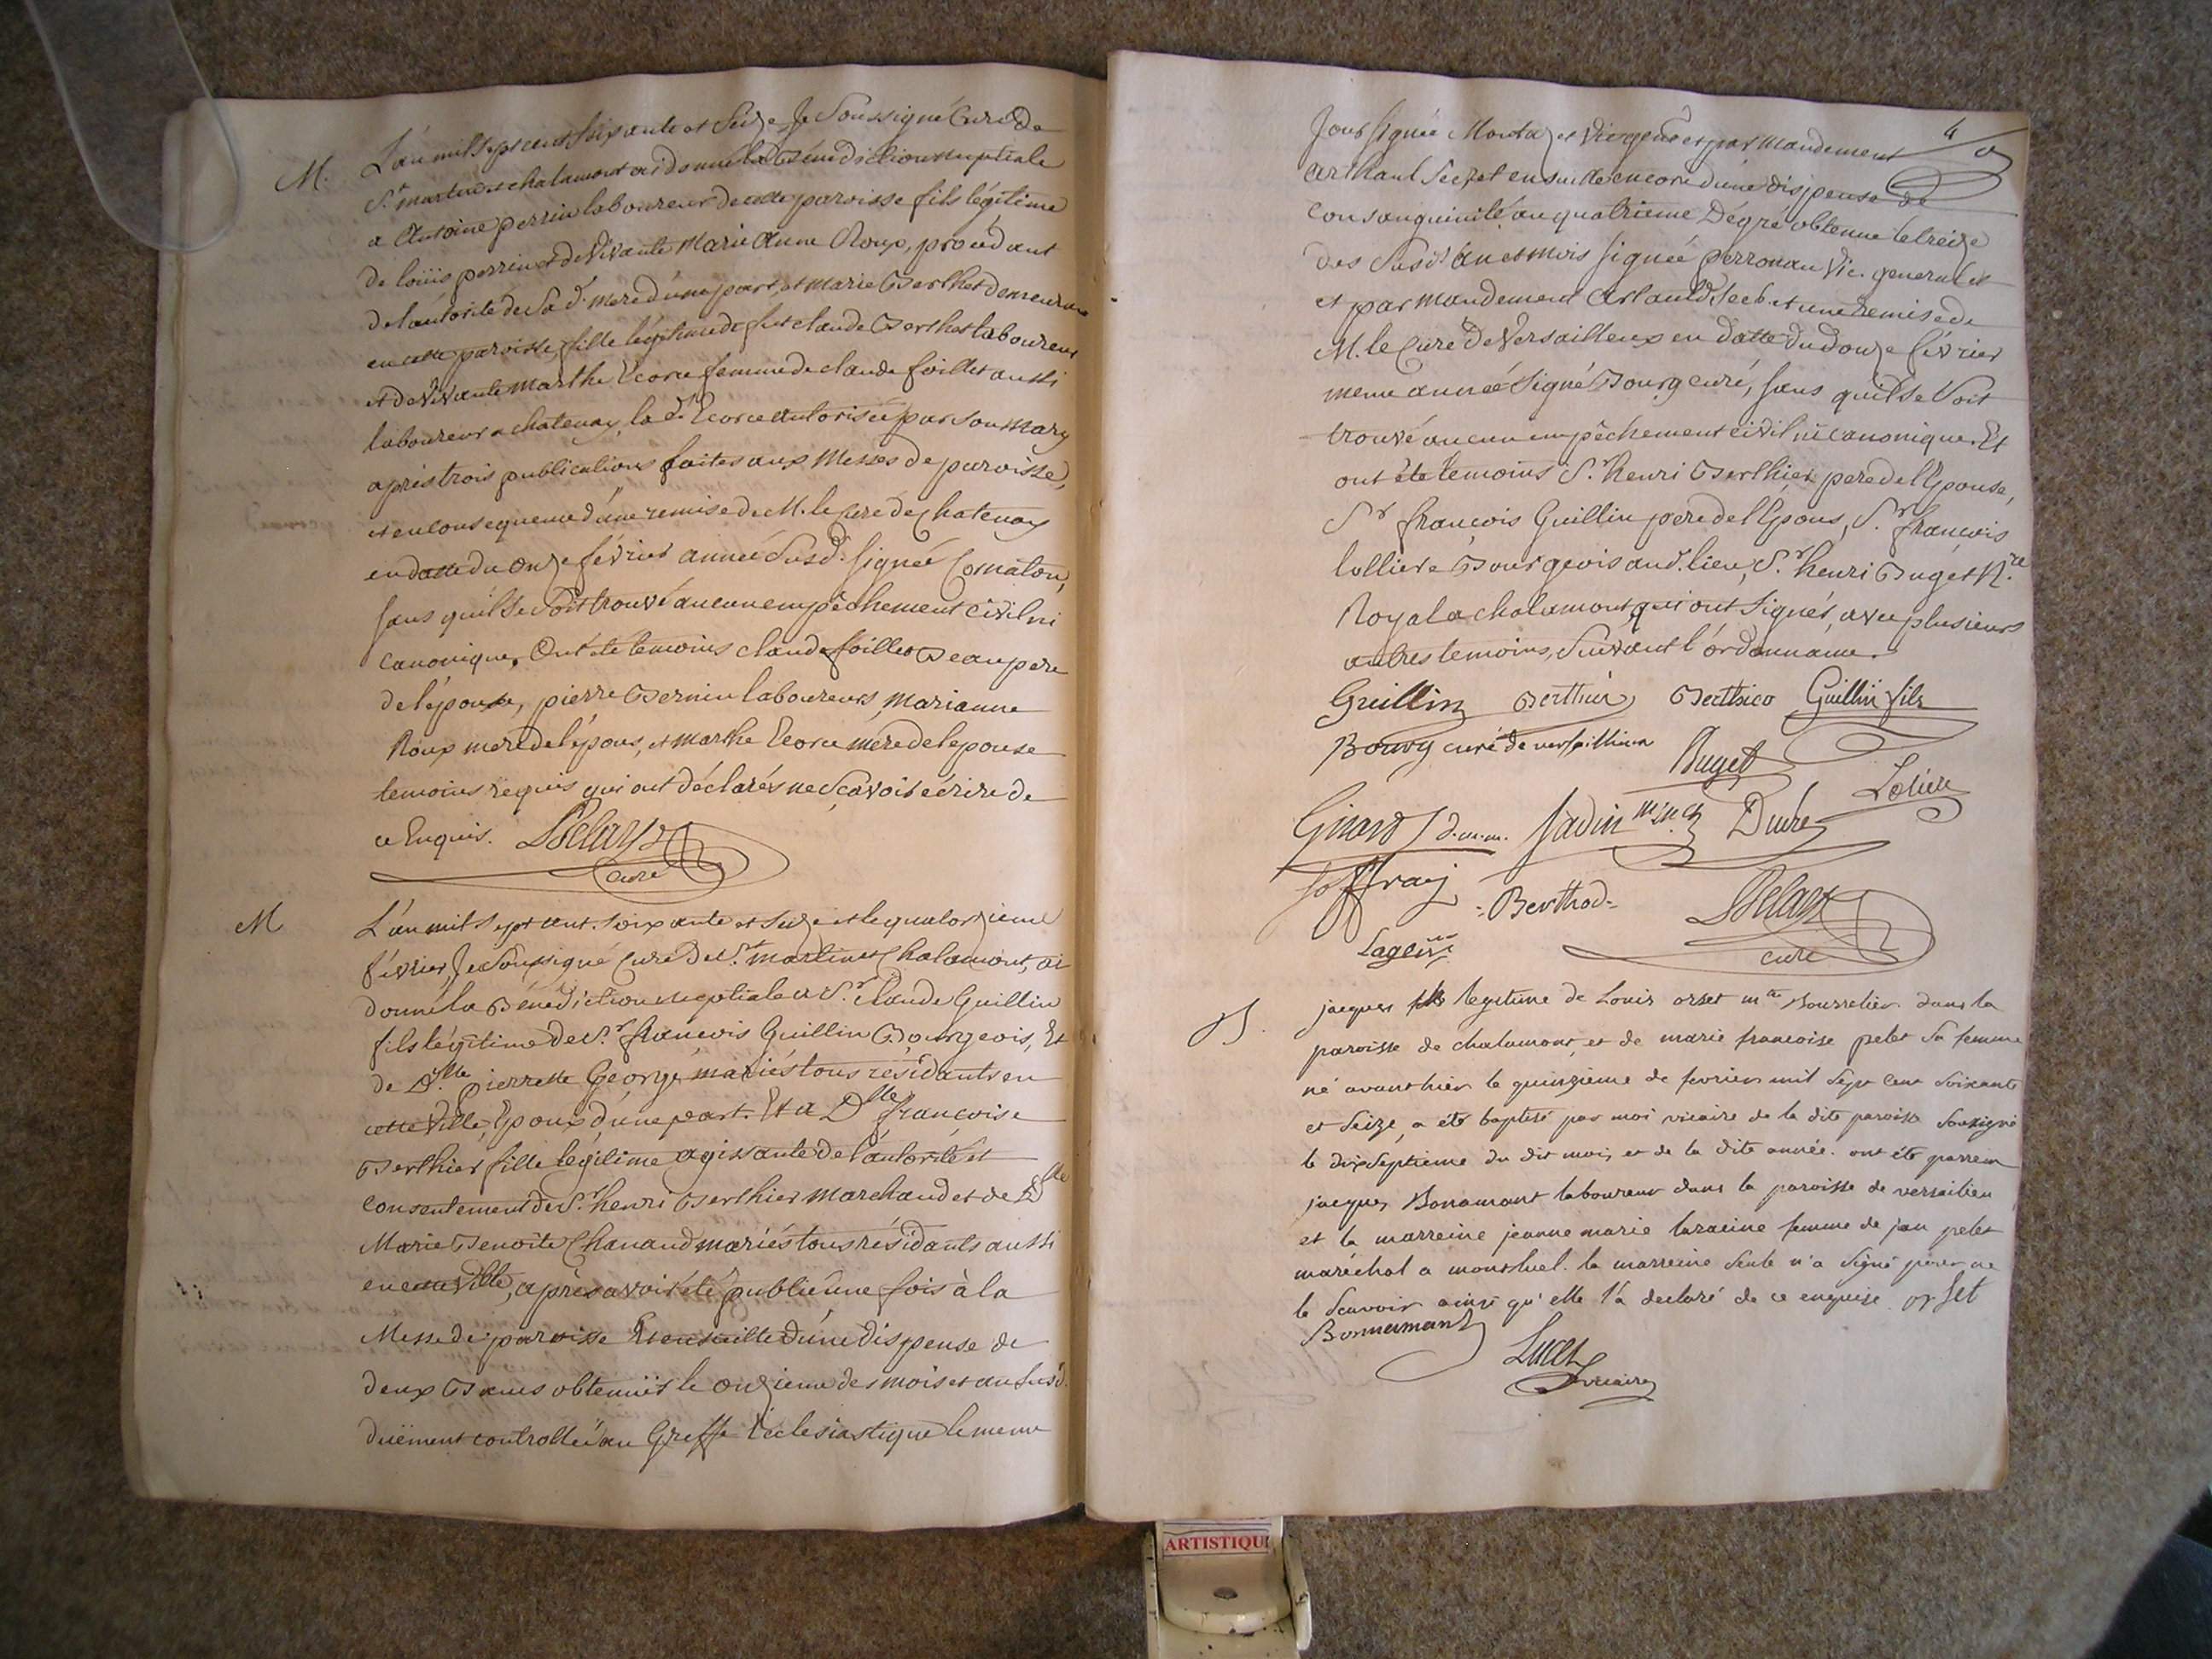 M. L'an mil sept cent soixante et Seize Je Soussigné Curé de
St martin et chalamont ai donné la Bénédiction nuptiale
a Antoine perrin laboureur de cette paroisse fils légitime
de loüis perrin et de Vivante Marie Anne Roux, procédant
de l'autorité de Sa de mere d'une part, et marie Berthet demeurant
en cette paroisse, fille légitime de fut claude Berthet laboureur
et de Vivante marthe Ecorce femme de claude foillet aussi
laboureur a chatenay, la de Ecorce autorisée par Son Mary
après trois publications faites aux Messes de paroisse,
et en consequence d'une remise de M. le Curé de Chatenay
en datte du Onze février année Susd. Signée Comaton,
Sans qu'il Se Soit trouvé aucun empêchement civil ni
Canonique. Ont été temoins claude foillet Beaupere
de l'épouse, pierre Bernin laboureurs, Marianne
Roux mere de l'épous, et marthe Ecorce mère de l'epouse
temoins requis qui ont déclarés ne Sçavoir écrire de
ce Enquis. Delarx
curé
M L'an mil sept cent Soixante et Seize et le quatorzieme
février, Je Soussigné Curé de St. martin et Chalamont, ai
donné la Bénédiction nuptiale a Sr. claude Guillin
fils légitime de Sr. françois Guillin Bourgeois, Et
de Dlle pierrette George, mariés tous résidants en
cette Ville, Epoux d'une part. Et a Dlle françoise
Berthier fille légitime agissante de l'autorité et
Consentement de Sr. henri Berthier Marchand et de Dlle
Marie Benoite Chanaud mariés tous résidants aussi
en cette Ville, après avoir été publié une fois à la
Messe de paroisse Et ensuitte d'une dispense de
deux Bancs obtenüe le onzieme des mois et an Susd.
düement controllée au Greffe Ecclesiastique le meme
4
Jour Signée Montaz et Vicegén et par mandement
arthaud Secret ensuitte encore d'une dispense de
Consanguinité au quatrieme Dégré obtenue le treize
des Susds an et mois Signée perronau Vic. general et
et par mandement Artauld Secb. et une remise de
M. le Curé de Versailleux en datte du douze février
meme année Signé Bourg curé, Sans qu'il Se Soit
trouvé aucun empêchement civil ni canonique. Et
ont été temoins Sr. henri Berthier pere de l'Epouse,
Sr françois Guillin pere de l'Epous, Sr. françois
lolliere Bourgeois aud. lieu, Sr. henri Buget Nre
Royal a chalamont, qui ont Signés, avec plusieurs
autres temoins, Suivant l'ordonnance.
Guillin Berthier Berthier Guillin fils
Bourg curé de versaillieu
Buget
Lolière
Girard d.m.m. Jadin Duvre
Joffray
Berthod
Delarx
curé
B. jacques fils legitime de Louis orset mtre Bourrelier dans la
paroisse de chalamont, et de marie francoise pelet Sa femme
né avanthier le quinzieme de fevrier mil Sept Cent Soixante
et Seize, a été baptisé par moi vicaire de la dite paroisse Soussigné
le dixseptieme du dit mois et de la dite année. ont été parrein
jacques Bonamant laboureur dans la paroisse de versailieu
et la marreine jeanne marie laracine femme de jan pelet
maréchal a montluel. la marreine Seule n'a Signé pour ne
le Scavoir ainsi qu'elle l'a declaré de ce enquise. orset
Bonnamant
Luces
vicaire
ARTISTIQU